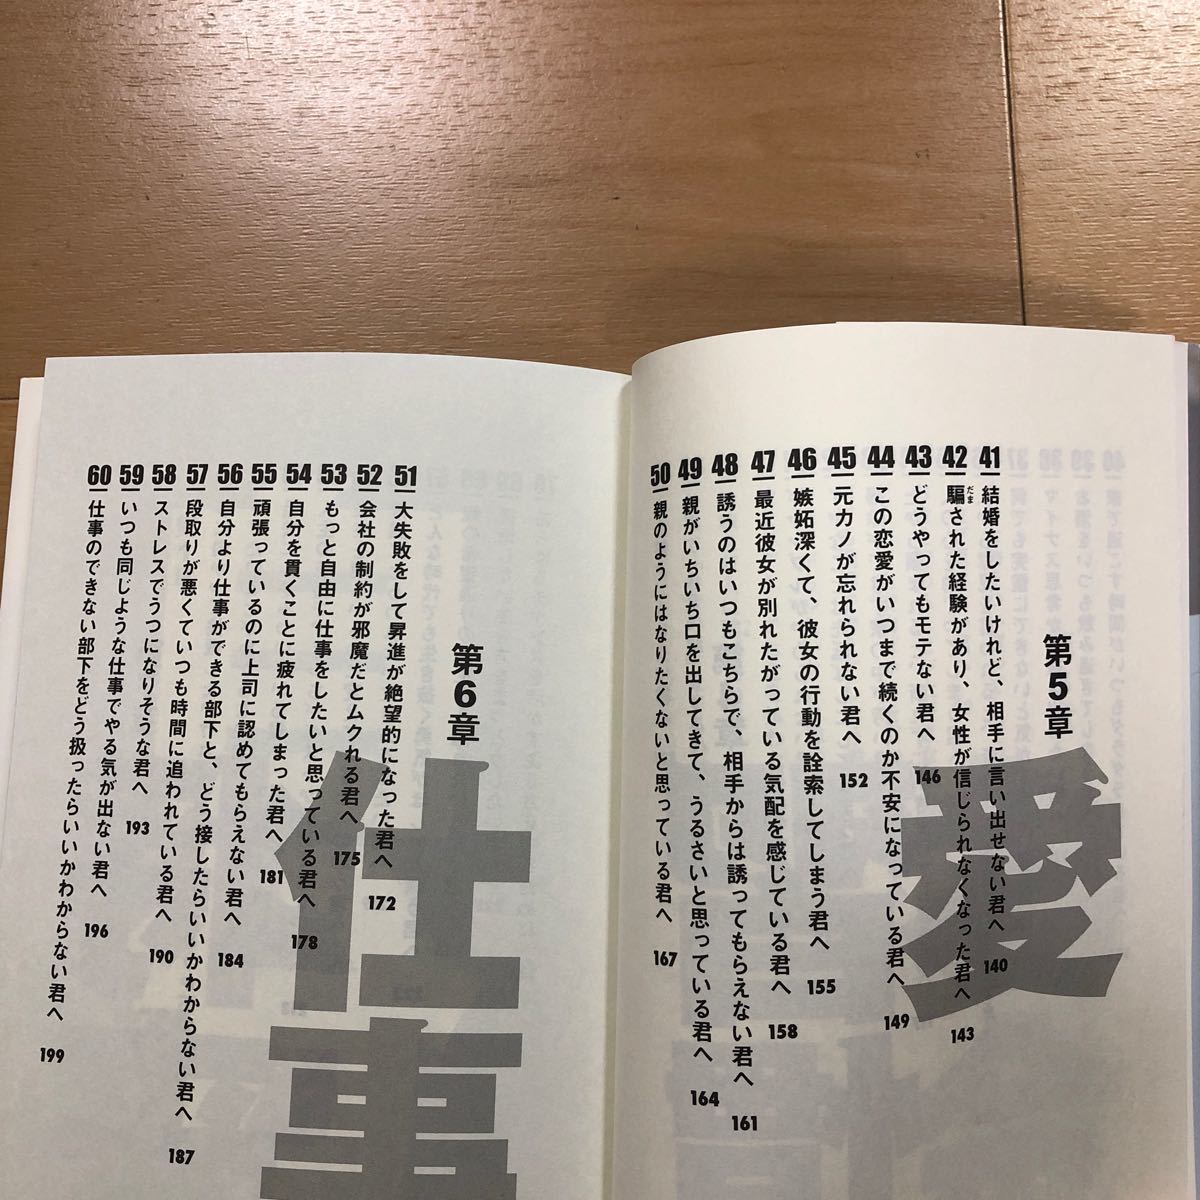 第5章
愛
41 結婚をしたいけれど、相手に言い出せない君へ 140
42 騙された経験があり、女性が信じられなくなった君へ 143
だま
43 どうやってもモテない君へ 146
44 この恋愛がいつまで続くのか不安になっている君へ 149
45 元カノが忘れられない君へ 152
46 嫉妬深くて、彼女の行動を詮索してしまう君へ 155
47 最近彼女が別れたがっている気配を感じている君へ 158
48 誘うのはいつもこちらで、相手からは誘ってもらえない君へ 161
49 親がいちいち口を出してきて、うるさいと思っている君へ 164
50 親のようにはなりたくないと思っている君へ 167
第6章
仕事
51 大失敗をして昇進が絶望的になった君へ 172
52 会社の制約が邪魔だとムクれる君へ 175
53 もっと自由に仕事をしたいと思っている君へ 178
54 自分を貫くことに疲れてしまった君へ 181
55 頑張っているのに上司に認めてもらえない君へ 184
56 自分より仕事ができる部下と、どう接したらいいかわからない君へ 187
57 段取りが悪くていつも時間に追われている君へ 190
58 ストレスでうつになりそうな君へ 193
59 いつも同じような仕事でやる気が出ない君へ 196
60 仕事のできない部下をどう扱ったらいいかわからない君へ 199